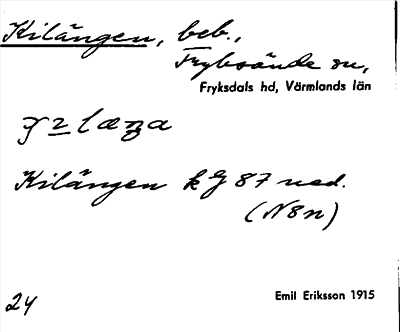 Kilängen, beb.,
Fryksände sn,
Fryksdals hd, Värmlands län
Kilängen kG 87 ned.
(N8n)
24
Emil Eriksson 1915